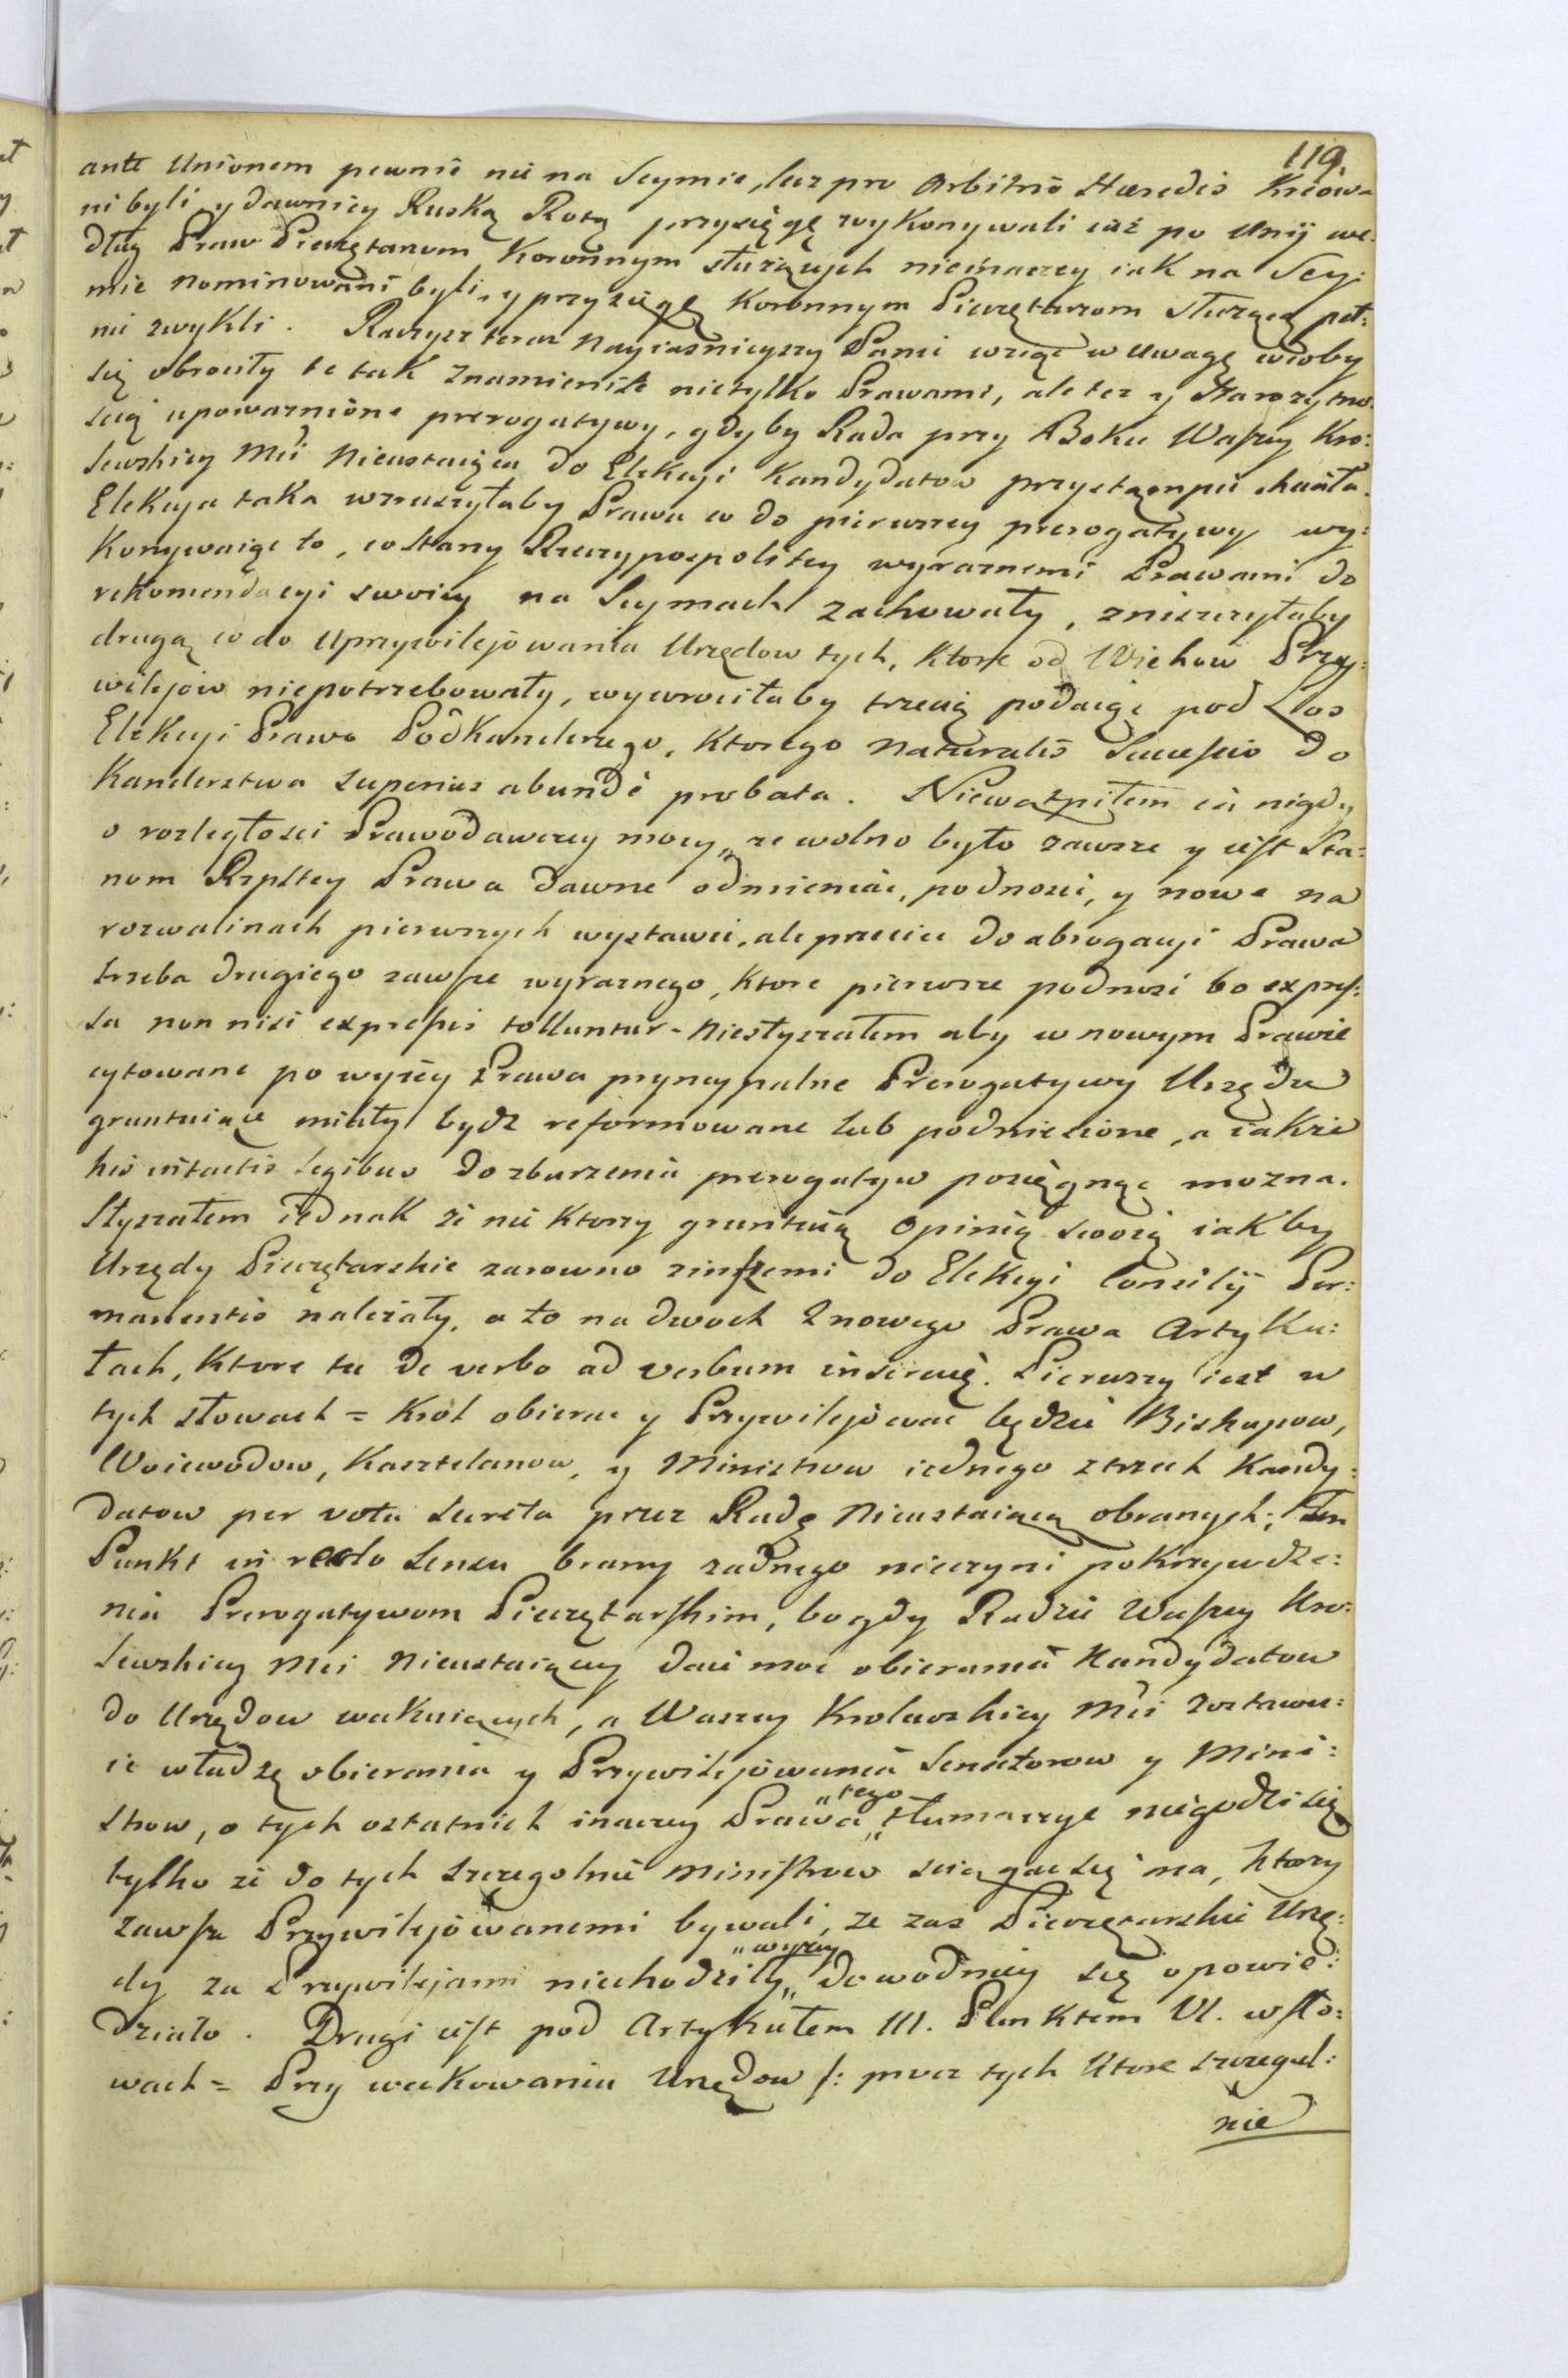 119.
ante Unionem pewnie nie na Seymie, lecz pro Arbitrio Hæredis kreowa-
ni byli, y dawniey Ruską Rotą przysięgę wykonywali iuż po Unij we:
dług Praw Pieczętarzom Koronnym służących nieinaczey iak na Sey:
mie nominowani byli, y przysięgę Koronnym Pieczętarzom służącą peł:
nić zwykli. Raczysz teraz Nayiasnieyszy Panie wziąć w uwagę wcoby
się obrociły te tak znamienite nietylko Prawami, ale tez y Starożytno:
scią upoważnione prerogatywy, gdyby Rada przy Boku Waszey Kro:
lewskiey Mci Nieustaiąca do Elekcyi Kandydatow przystąmpić chciała.
Elekcya taka wzruszyłaby Prawa co do pierwszey prerogatywy wy:
konywaiąc to, co Stany Rzeczypospolitey wyraznemi Prawami do
rekomendacyi swoiey na Seymach zachowały, zniszczyłaby
drugą co do uprzywilejowania Urzędow tych, ktore od Wiekow Przy:
wilejow niepotrzebowały, wywrociłaby trzecią podaiąc pod Los
Elekcyi Prawo Podkanclerzego, ktorego naturalis Successio do
Kanclerstwa superius abunde probata. Niewątpiłem ia nigdy
o rozległosci Prawodawczey mocy„ ze wolno było zawsze y iest Sta:
nom Rzpltey Prawa dawne odmieniać, podnosić, y nowe na
rozwalinach pierwszych wystawić, ale przecie do abrogacyi Prawa
trzeba drugiego zawsze wyraznego, ktore pierwsze podnosi bo expres:
sa non nisi expressis tolluntur - Niesłyszałem aby w nowym Prawie
cytowane powyżey Prawa pryncypalne Prerogatywy Urzędu
gruntuiące miały bydz reformowane lub podniesione, a iakże
his intactis legibus do zburzenia prerogatyw posięgnąć można.
Słyszałem iednak że nie ktorzy gruntuią opinią swoią iak by
Urzędy Pieczętarskie zarowno z inszemi do Elekcyi Consilij Per:
manentis należały, a to na dwoch z nowego Prawa Artyku:
łach, ktore tu de verbo ad verbum inseruię. Pierwszy iest w
tych słowach = Krol obierac y Przywilejować będzie Biskupow,
Woiewodow, Kasztelanow, y Ministrow iednego z trzech Kandy:
datow per vota secreta przez Radę Nieustaiącą obranych; Ten
Punkt in recto sensu brany żadnego nieczyni pokrzywdze:
nia Prerogatywom Pieczętarskim, bo gdy Radzie Waszey Kro:
lewskiey Mci Nieustaiącey daie moc obierania Kandydatow
do Urzędow wakuiących, a Waszey Krolewskiey Mci zostawu:
ie władzę obierania y Przywilejowania Senatorow y Mini:
„tego
strow, o tych ostatnich inaczey Prawa„ tłumaczyć niegodzi się
tylko że do tych szczegolnie Ministrow sciągać się ma, ktorzy
zawsze Przywilejowanemi bywali, że zas Pieczętarskie Urzę:
„wyzey
dy za Przywilejami niechodziły„ dowodniey się opowie:
działo. Drugi iest pod Artykułem III. Punktem VI. w sło:
wach = Przy wakowaniu Urzędow /: procz tych ktore szczegul:
nie